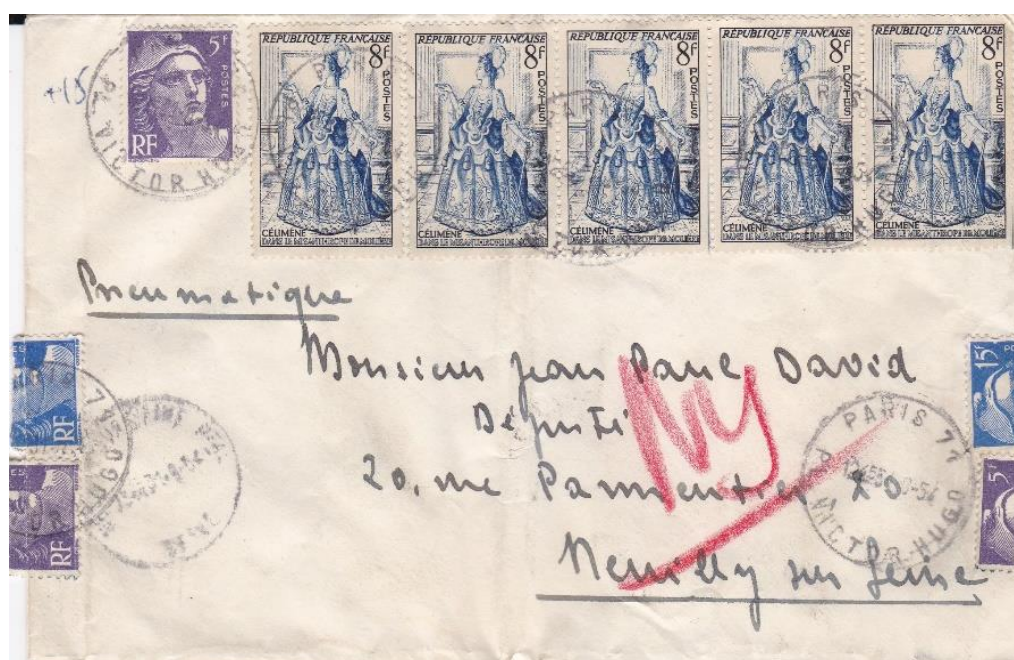 5F
POSTES
RF
PL. VICTOR HUGO
+15
RÉPUBLIQUE FRANÇAISE
8F
POSTES
CÉLIMÈNE
DANS LE MISANTHROPE DE MOLIÈRE
RÉPUBLIQUE FRANÇAISE
8F
POSTES
CÉLIMÈNE
DANS LE MISANTHROPE DE MOLIÈRE
RÉPUBLIQUE FRANÇAISE
8F
POSTES
CÉLIMÈNE
DANS LE MISANTHROPE DE MOLIÈRE
RÉPUBLIQUE FRANÇAISE
8F
POSTES
CÉLIMÈNE
DANS LE MISANTHROPE DE MOLIÈRE
RÉPUBLIQUE FRANÇAISE
8F
POSTES
CÉLIMÈNE
DANS LE MISANTHROPE DE MOLIÈRE
Pneumatique
Monsieur Jean Paul David
Député
20, rue Parmentier 20
Neuilly sur Seine
Ny
RF
RF
15F
5F
PARIS 77
PL. VICTOR-HUGO